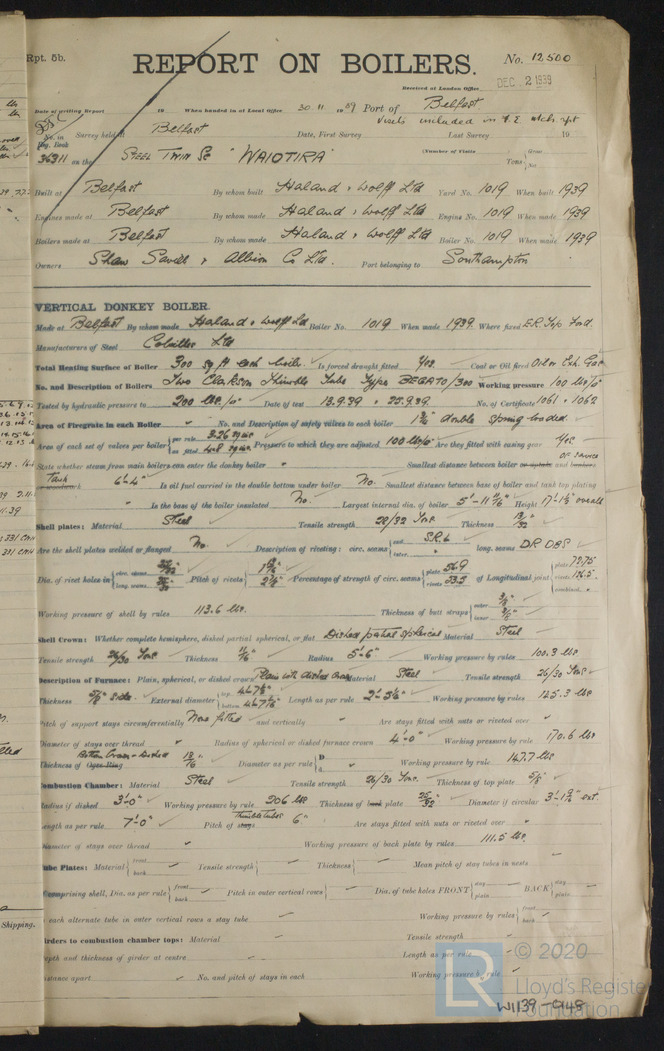 Rpt. 5b.
REPORT ON BOILERS.
No. 12500
Received at London Office
DEC 2 1939
Date of writing Report 19 When handed in at Local Office 30.11.1939 Port of Belfast
No. in Reg. Book Survey held at Belfast Date, First Survey Last Survey 19
36311 on the Steel Twin Sc "WAIOTIRA" (Number of Visits Tons { Gross Net
Built at Belfast By whom built Haland & Wolff Ltd Yard No. 1019 When built 1939
Engines made at Belfast By whom made Haland & Wolff Ltd Engine No. 1019 When made 1939
Boilers made at Belfast By whom made Haland & Wolff Ltd Boiler No. 1019 When made 1939
Owners Shaw Savill & Albion Co Ltd. Port belonging to Southampton
VERTICAL DONKEY BOILER.
Made at Belfast By whom made Haland & Wolff Ld Boiler No. 1019 When made 1939. Where fixed E.R. Top Ford.
Manufacturers of Steel Colvilles Ltd
Total Heating Surface of Boiler 300 sq ft each boiler. Is forced draught fitted Yes. Coal or Oil fired Oil or Exh. Gas
No. and Description of Boilers Two Clarkson Thimble Tube Type Working pressure 100 lbs/□"
Tested by hydraulic pressure to 200 lbs/□" Date of test 13.9.39 & 25.9.39. No. of Certificate 1061 & 1062
Area of Firegrate in each Boiler " No. and Description of safety valves to each boiler double Spring loaded.
Area of each set of valves per boiler { per rule 3.26 sq ins as fitted Pressure to which they are adjusted 100 lbs/□" Are they fitted with easing gear Yes
State whether steam from main boilers can enter the donkey boiler " Smallest distance between boiler or uptake and bunkers
or woodwork 6'-4" Is oil fuel carried in the double bottom under boiler No. Smallest distance between base of boiler and tank top plating
" Is the base of the boiler insulated No. Largest internal dia. of boiler 5'-11 11/16" Height 17'-1½" overall
Shell plates: Material Steel Tensile strength 28/32 Tons. Thickness 13/32
Are the shell plates welded or flanged No. Description of riveting: circ. seams { end S.R.L inter. " long. seams DR DBS
Dia. of rivet holes in { circ. seams long. seams Pitch of rivets { Percentage of strength of circ. seams { plate 56.9 rivets 53.5 of Longitudinal joint { plate 72.75 rivets 126.5 combined "
Working pressure of shell by rules 113.6 lbs. Thickness of butt straps { outer inner
Shell Crown: Whether complete hemisphere, dished partial spherical, or flat Dished partial spherical Material Steel
Tensile strength 26/30 Tons Thickness 11/16" Radius 5'-6" Working pressure by rules 100.3 lbs
Description of Furnace: Plain, spherical, or dished crown Plain with dished crown Material Steel Tensile strength 26/30 Tons
Thickness External diameter { top bottom Length as per rule 2'-5½" Working pressure by rules 125.3 lbs
Pitch of support stays circumferentially None fitted and vertically " Are stays fitted with nuts or riveted over "
Diameter of stays over thread " Radius of spherical or dished furnace crown 4'-0" Working pressure by rule 170.6 lbs
Thickness of Ogee Ring Bottom Crown - Dished 13/16" Diameter as per rule { D d Working pressure by rule 147.7 lbs
Combustion Chamber: Material Steel Tensile strength 26/30 Tons. Thickness of top plate 5/8"
Radius if dished 3'-0" Working pressure by rule 206 lbs Thickness of back plate 25/32" Diameter if circular 3'-1 9/16" ext.
Length as per rule 7'-0" Pitch of stays Thimble tubes 6" Are stays fitted with nuts or riveted over "
Diameter of stays over thread " Working pressure of back plate by rules 111.5 lbs.
Tube Plates: Material { front back Tensile strength { Thickness { Mean pitch of stay tubes in nests
If comprising shell, Dia. as per rule { front back Pitch in outer vertical rows { Dia. of tube holes FRONT { stay plain BACK { stay plain
each alternate tube in outer vertical rows a stay tube Working pressure by rules { front back
Girders to combustion chamber tops: Material Tensile strength
Depth and thickness of girder at centre Length as per rule
Distance apart No. and pitch of stays in each Working pressure by rule
Shipping.
LR © 2020 Lloyd's Register Foundation
W1139-0148